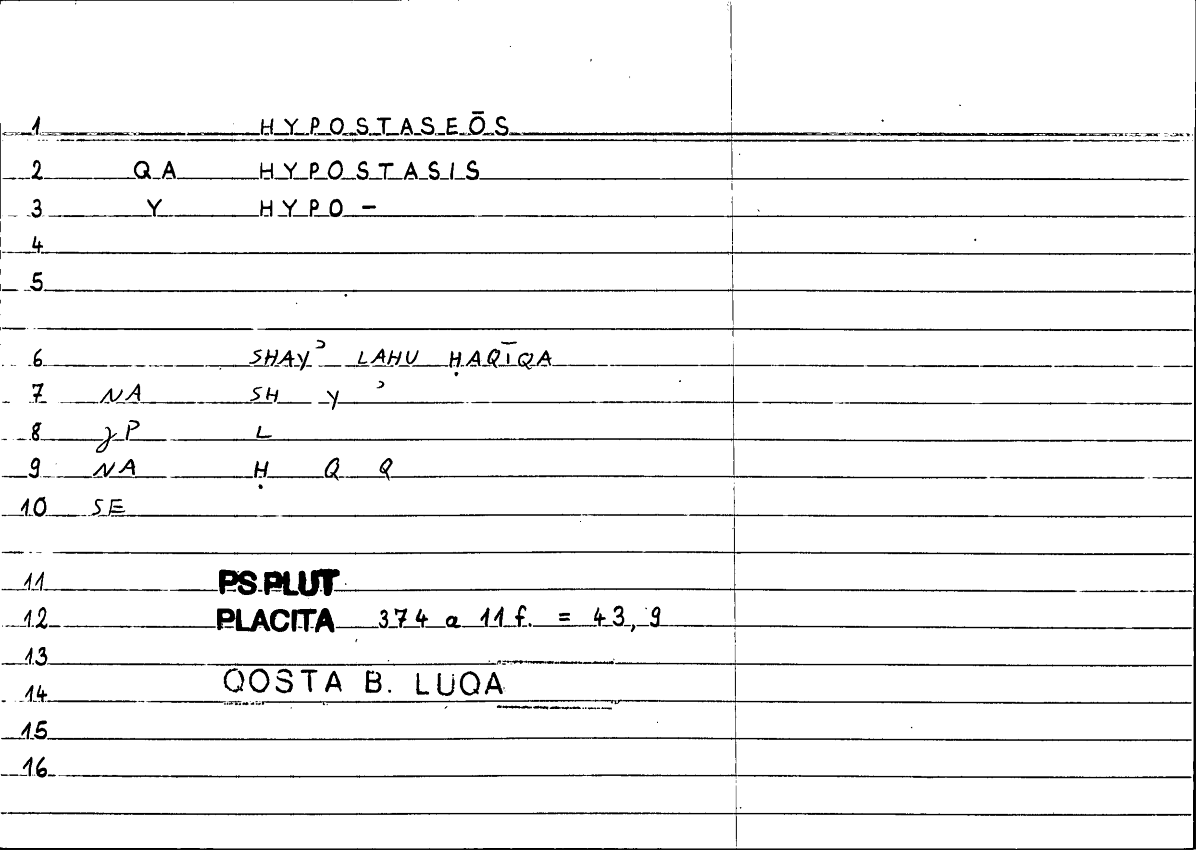 1 HYPOSTASEŌS
2 QA HYPOSTASIS
3 Y HYPO-
4
5
6 SHAYʾ LAHU ḤAQĪQA
7 NA SH Y ʾ
8 JP L
9 NA Ḥ Q Q
10 SE
11 PS.PLUT
12 PLACITA 374 a 11 f. = 43, 9
13
QOSTA B. LUQA
14
15
16